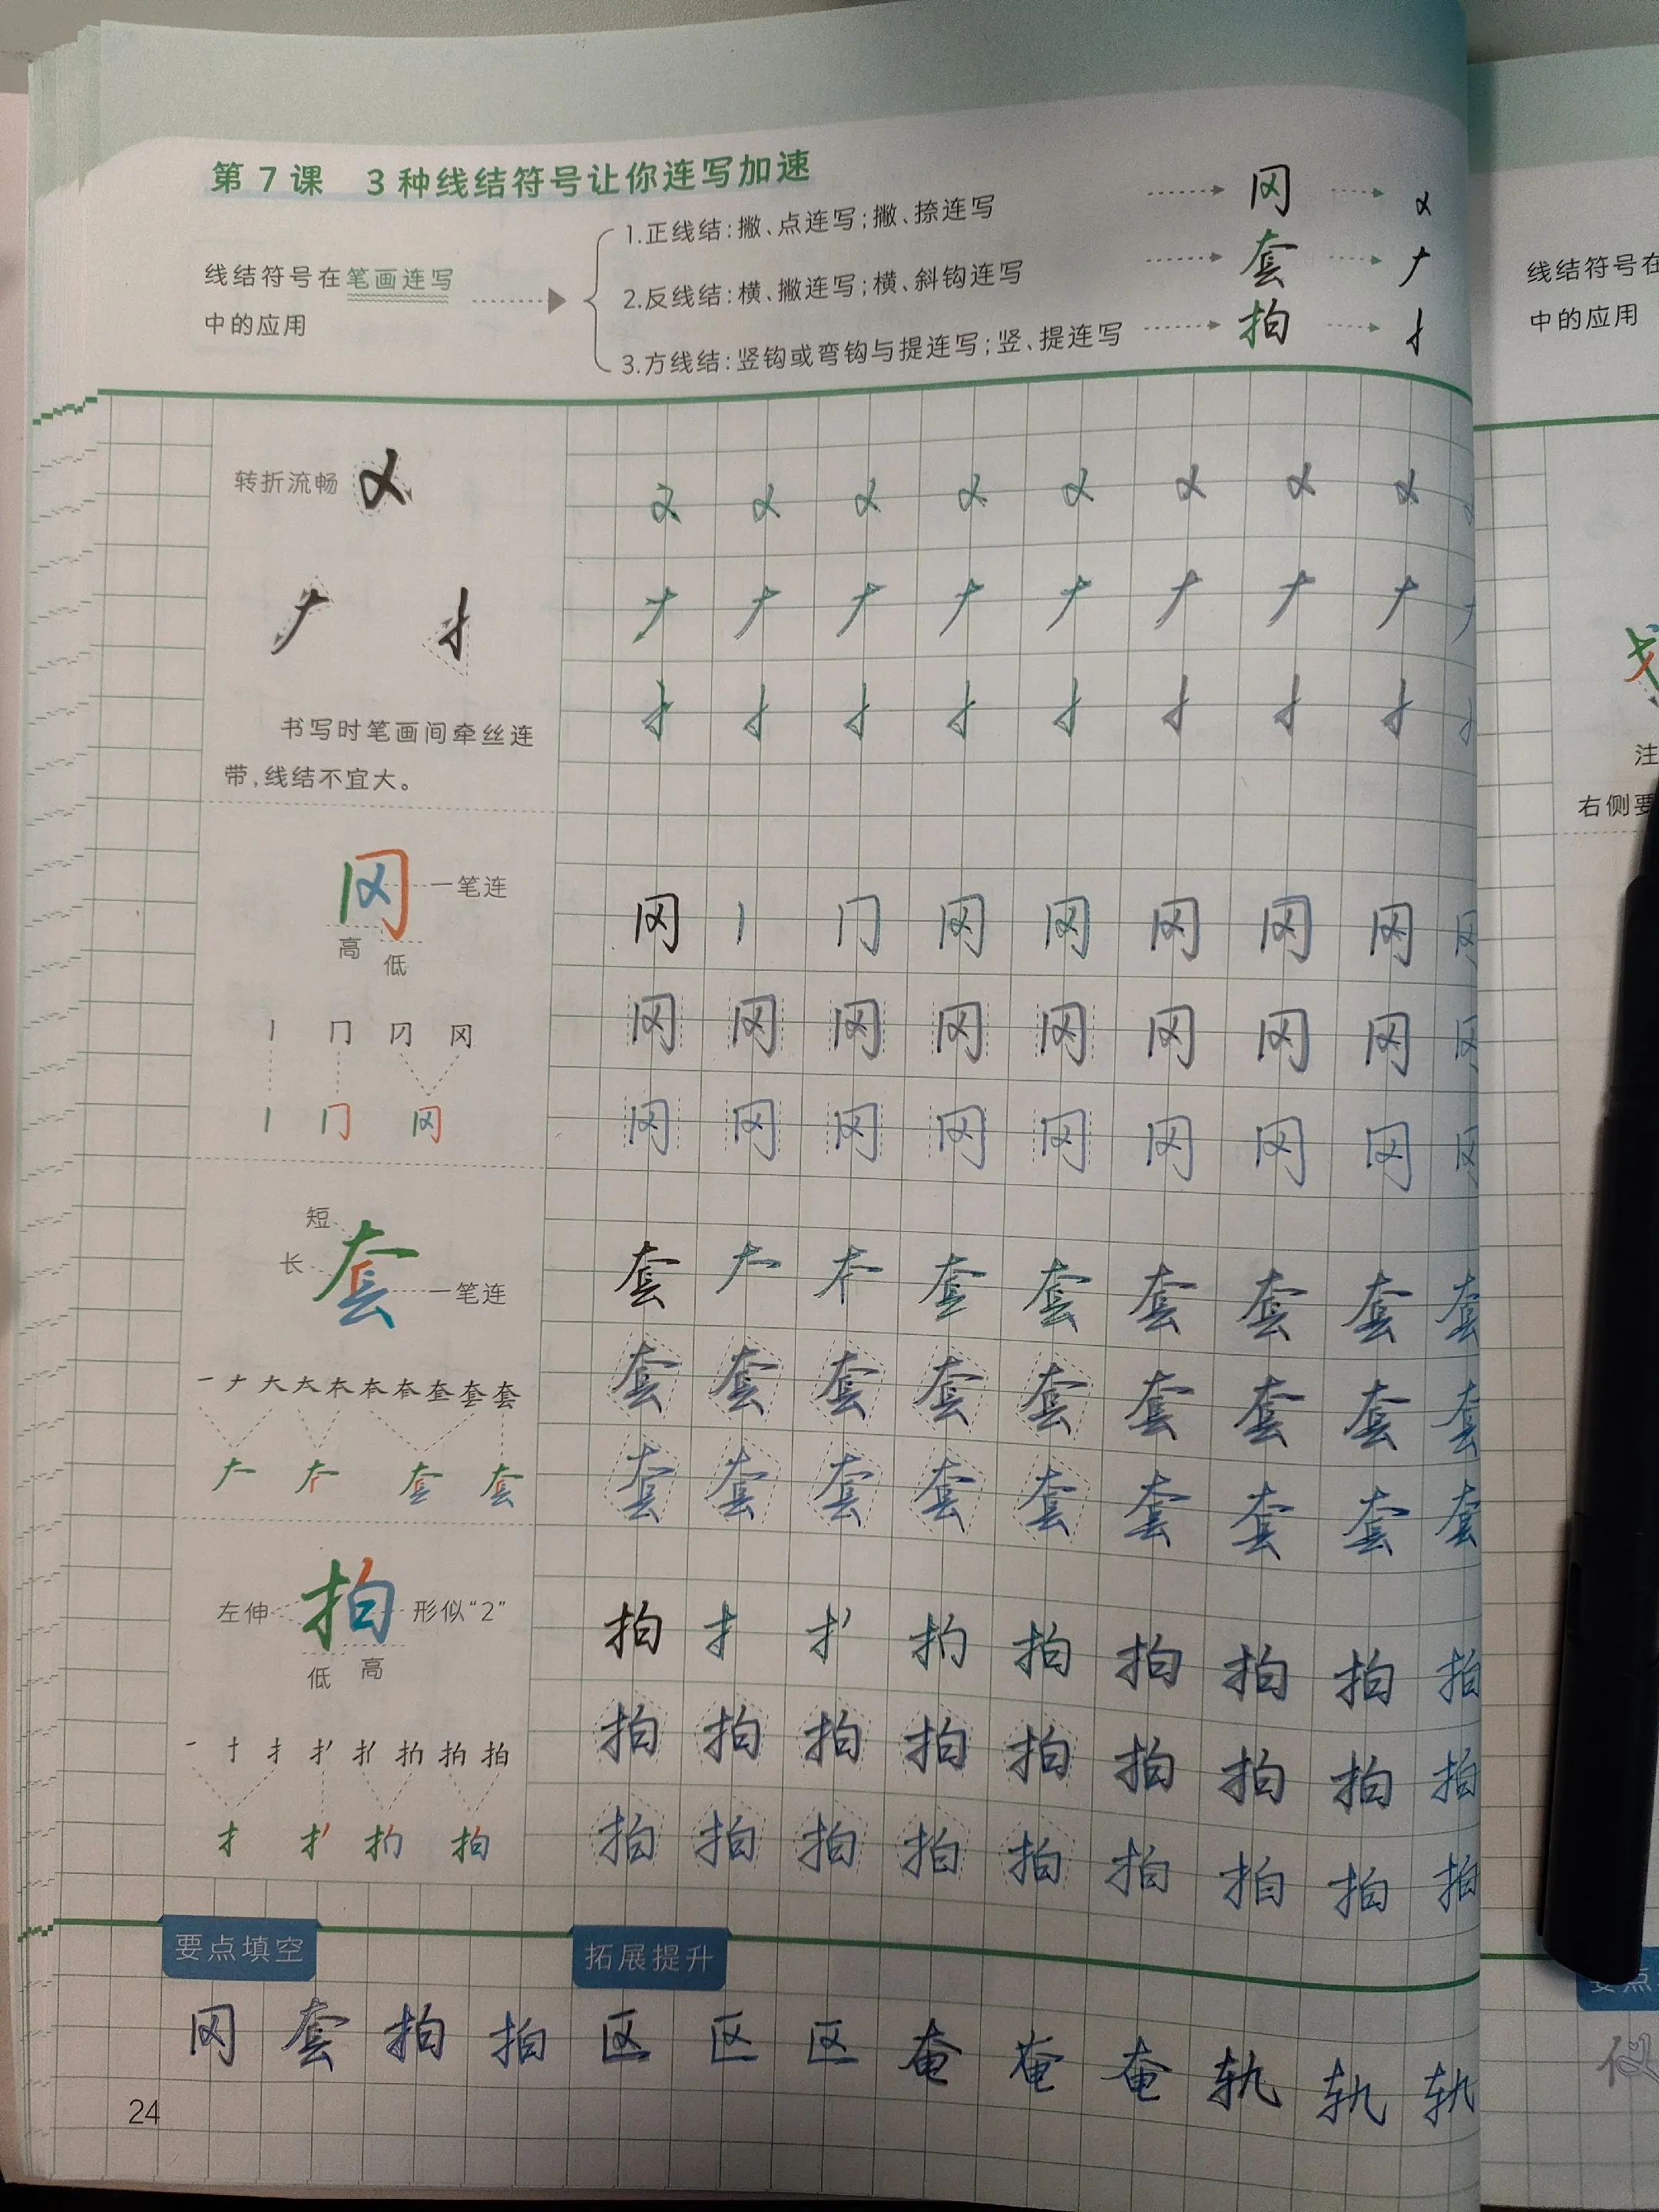 第7课 3种线结符号让你连写加速
线结符号在笔画连写
中的应用
1.正线结:撇、点连写;撇、捺连写 冈
2.反线结:横、撇连写;横、斜钩连写 套
3.方线结:竖钩或弯钩与提连写;竖、提连写 拍
线结符号在
中的应用
转折流畅
书写时笔画间牵丝连
带,线结不宜大。
注
右侧要
一笔连
高
低
冈 冈 冈 冈 冈 冈 冈
冈 冈 冈 冈 冈 冈 冈 冈 冈
冈 冈 冈 冈 冈 冈 冈 冈 冈
短
长
一笔连
套 套 套 套 套 套 套
套 套 套 套 套 套 套 套 套
套 套 套 套 套 套 套 套 套
左伸 拍 形似“2”
低 高
拍 扌 拍 拍 拍 拍 拍
拍 拍 拍 拍 拍 拍 拍 拍 拍
拍 拍 拍 拍 拍 拍 拍 拍 拍
要点填空 拓展提升
冈 套 拍 拍 区 区 区 奄 奄 奄 轨 轨 轨
24